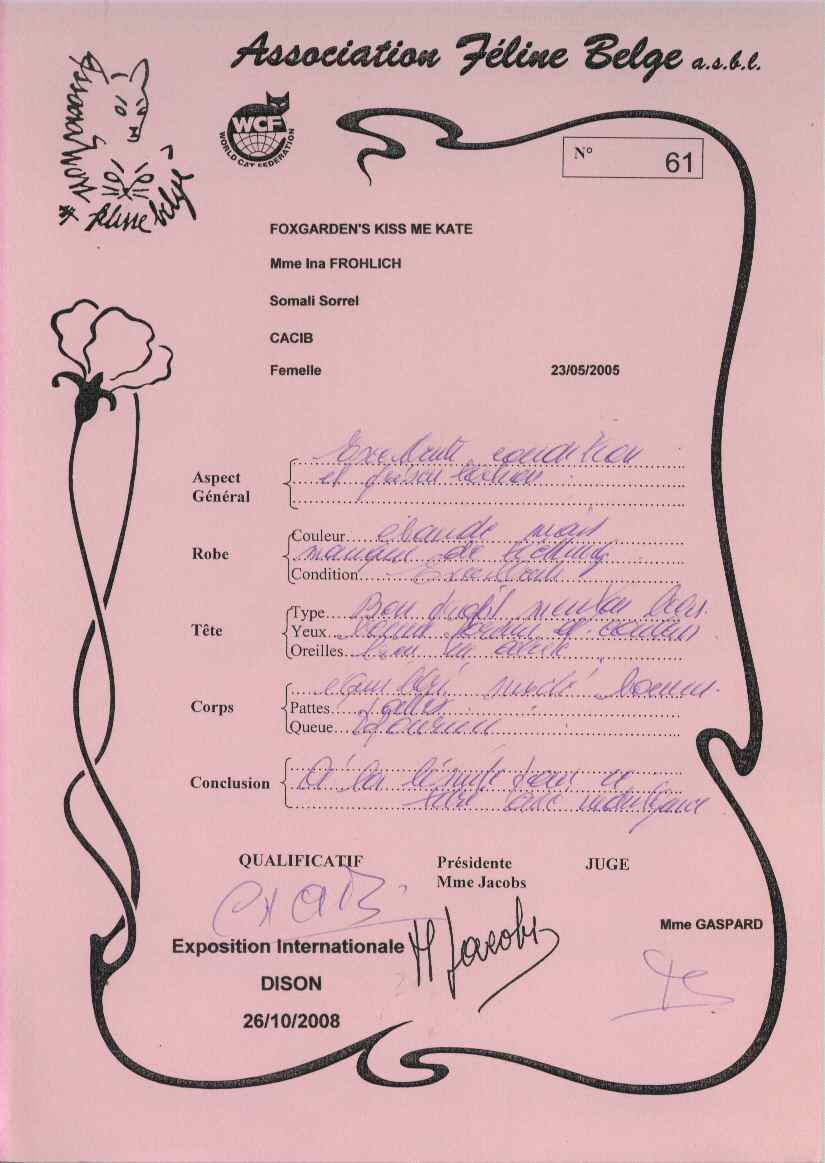 Association Féline Belge a.s.b.l.
Association
féline belge
WCF
WORLD CAT FEDERATION
N° 61
FOXGARDEN'S KISS ME KATE
Mme Ina FROHLICH
Somali Sorrel
CACIB
Femelle 23/05/2005
Excellente condition
Aspect
Général
et présentation
Couleur chaude mais
Robe
manque de ticking
Condition Excellente
Type Bon profil menton
Tête
Yeux bonne forme et couleur
Oreilles
Corps
Pattes
Queue
Conclusion
A la limite dans ce
titre avec indulgence
QUALIFICATIF Présidente JUGE
Mme Jacobs
CACIB
Mme GASPARD
Exposition Internationale
M Jacobs
DISON
26/10/2008